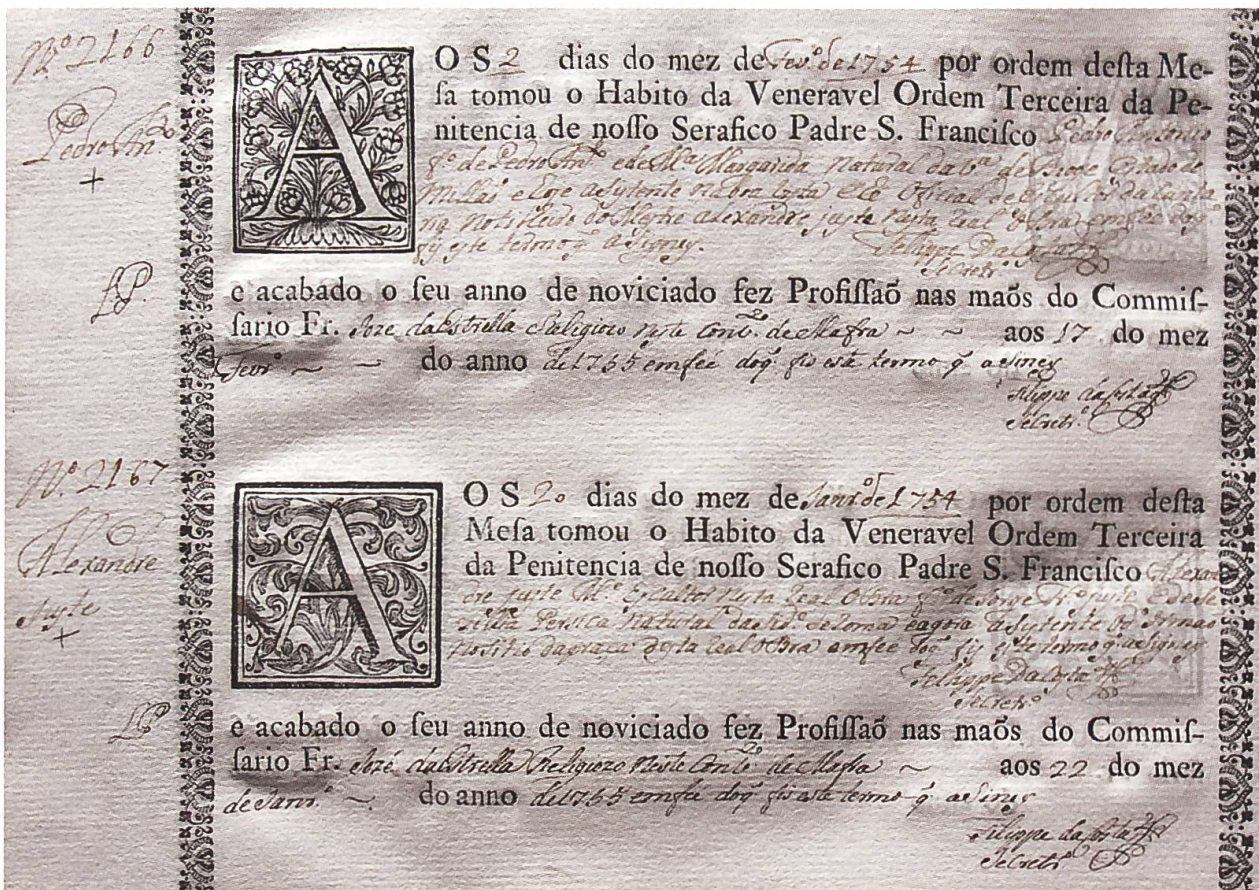 Nº 2166
Pedro Antº
+
AOS 2 dias do mez de Fevº de 1754 por ordem desta Me-
sa tomou o Habito da Veneravel Ordem Terceira da Pe-
nitencia de nosso Serafico Padre S. Francisco Pedro Antonio
fº de Pedro Antº e de Mª Margarida Natural da de Estado de
Millaõ e Oje asistente nesta Official de
no sitio do Mestre Alexandre juste nesta Real Obra emfee doq
fis este termo q asiney.
Fellippe DaCosta
Secretrº
LP.
e acabado o seu anno de noviciado fez Profissaõ nas maõs do Commis-
sario Fr. Joze da Estrella Religiozo neste Convtº de Mafra ~ ~ aos 17 do mez
Fevrº ~ ~ do anno de 1755 emfeé doq fis este termo q asiney
Filippe da Costa
Secretrº
Nº 2167
Alexandre
Juste
+
AOS 20 dias do mez de Janrº de 1754 por ordem desta
Mesa tomou o Habito da Veneravel Ordem Terceira
da Penitencia de nosso Serafico Padre S. Francisco Alexan
dre juste Mº Escultor nesta Real Obra fº de Jorge juste e de
Peruca Natural da de Roma e agora asistente
no sitio da praça desta Real Obra emfee doq fis este termo q asiney
Fellippe DaCosta
Secretrº
LP
e acabado o seu anno de noviciado fez Profissaõ nas maõs do Commis-
sario Fr. José da Estrella Religiozo neste Convtº de Mafra ~ aos 22 do mez
de Janrº ~ do anno de 1755 emfeé doq fis este termo q asiney
Filippe da Costa
Secretrº